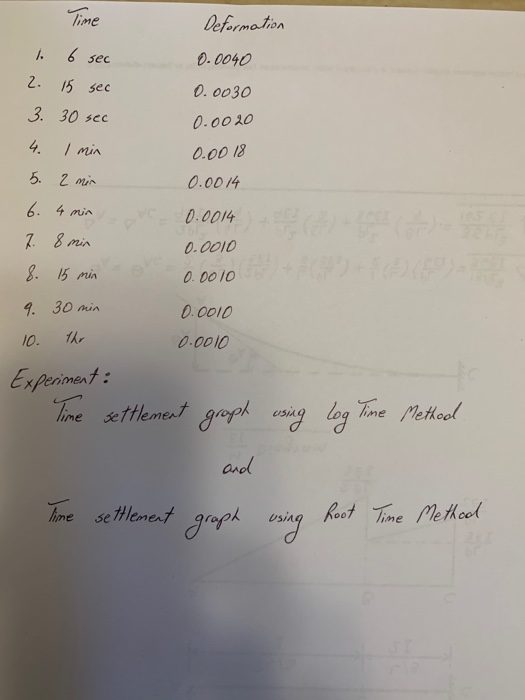 Time Deformation
1. 6 sec 0.0040
2. 15 sec 0.0030
3. 30 sec 0.0020
4. 1 min 0.0018
5. 2 min 0.0014
6. 4 min 0.0014
7. 8 min 0.0010
8. 15 min 0.0010
9. 30 min 0.0010
10. 1hr 0.0010
Experiment:
Time settlement graph using log Time Method
and
Time settlement graph using Root Time Method